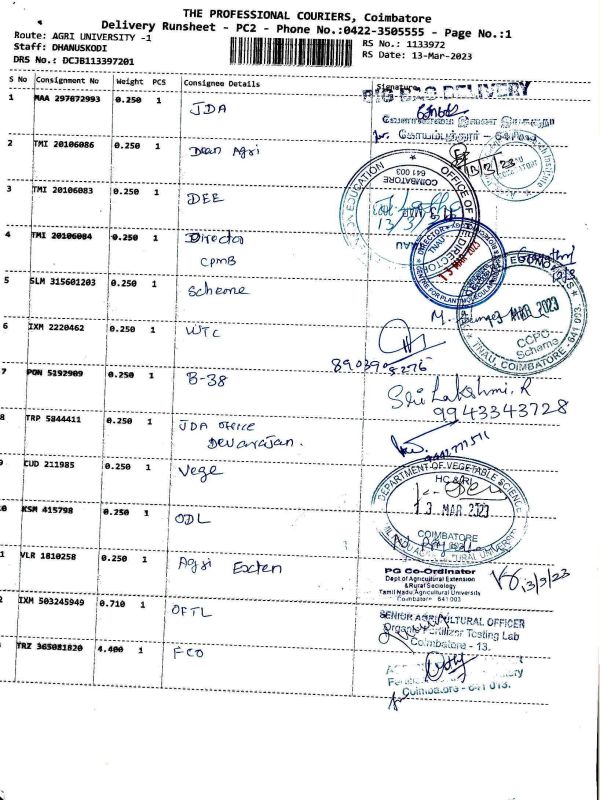 THE PROFESSIONAL COURIERS, Coimbatore
Delivery Runsheet - PC2 - Phone No.:0422-3505555 - Page No.:1
Route: AGRI UNIVERSITY -1
Staff: DHANUSKODI
DRS No.: DCJB113397201
RS No.: 1133972
RS Date: 13-Mar-2023
S No Consignment No Weight PCS Consignee Details Signature
BIG BAG DELIVERY
1 MAA 297872993 0.250 1 JDA
வேளாண்மை இணை இயக்குநர்
கோயம்புத்தூர்
2 TMI 20106086 0.250 1 Dean Agri
13/3/23
3 TMI 20106083 0.250 1 DEE
EDUCATION OFFICE OF
COIMBATORE
641 003
13/3
TNAU
4 TMI 20106084 0.250 1 Director
CPMB
DIRECTOR
TNAU
13 MAR 2023
5 SLM 315601203 0.250 1 Scheme
MAR 2023
CCPC
Scheme
TNAU, COIMBATORE - 641 003.
6 IXM 2220462 0.250 1 WTC
7 PON 5192909 0.250 1 B-38
Sri Lakshmi. R
9943343728
8 TRP 5844411 0.250 1 JDA office
Devarajan.
CUD 211985 0.250 1 Vege
DEPARTMENT OF VEGETABLE SCIENCE
HC & RI
13 MAR 2023
COIMBATORE
TAMIL NADU AGRICULTURAL UNIVERSITY
KSM 415798 0.250 1 ODL
VLR 1810258 0.250 1 Agri Exten
PG Co-Ordinator
Dept of Agricultural Extension
& Rural Sociology
Tamil Nadu Agricultural University
Coimbatore 641 003
13/3/23
IXM 503245949 0.710 1 OFTL
SENIOR AGRICULTURAL OFFICER
Organic Fertilizer Testing Lab
Coimbatore - 13.
TRZ 365081820 4.400 1 FCO
Coimbatore - 641 013.